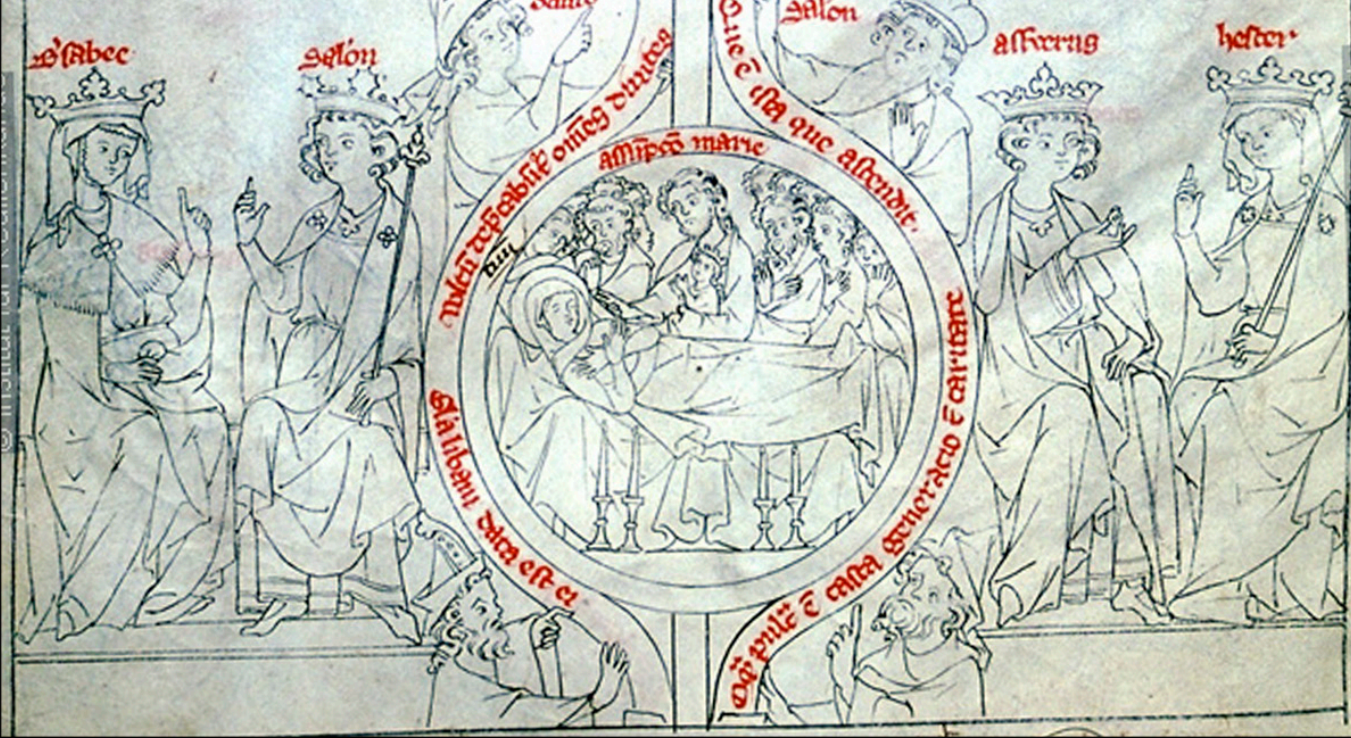 b'sabee
Salōn
dauid
Salōn
assverus
hester
Vultū deꝑcabūt͛ om̄es diuites
Que ē ista que ascendit·
assūpcō marie
Gl'a libani data est ei
Oq̄ pulc͛ ē casta generacio ē caritate
© Institut für Realienkunde